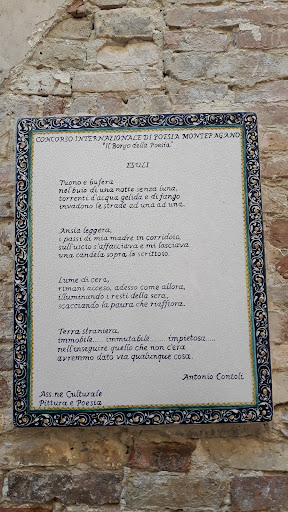 CONCORSO INTERNAZIONALE DI POESIA MONTEPAGANO
"Il Borgo della Poesia"
ESULI
Tuono e bufera
nel buio di una notte senza luna,
torrenti d'acqua gelida e di fango
invadono le strade ad una ad una.
Ansia leggera,
i passi di mia madre in corridoio,
sull'uscio s'affacciava e mi lasciava
una candela sopra lo scrittoio.
Lume di cera,
rimani acceso, adesso come allora,
illuminando i resti della sera,
scacciando la paura che riaffiora.
Terra straniera,
immobile..... immutabile....... impietosa....
nell'inseguire quello che non c'era
avremmo dato via qualunque cosa.
Antonio Contoli
Ass.ne Culturale
Pittura e Poesia